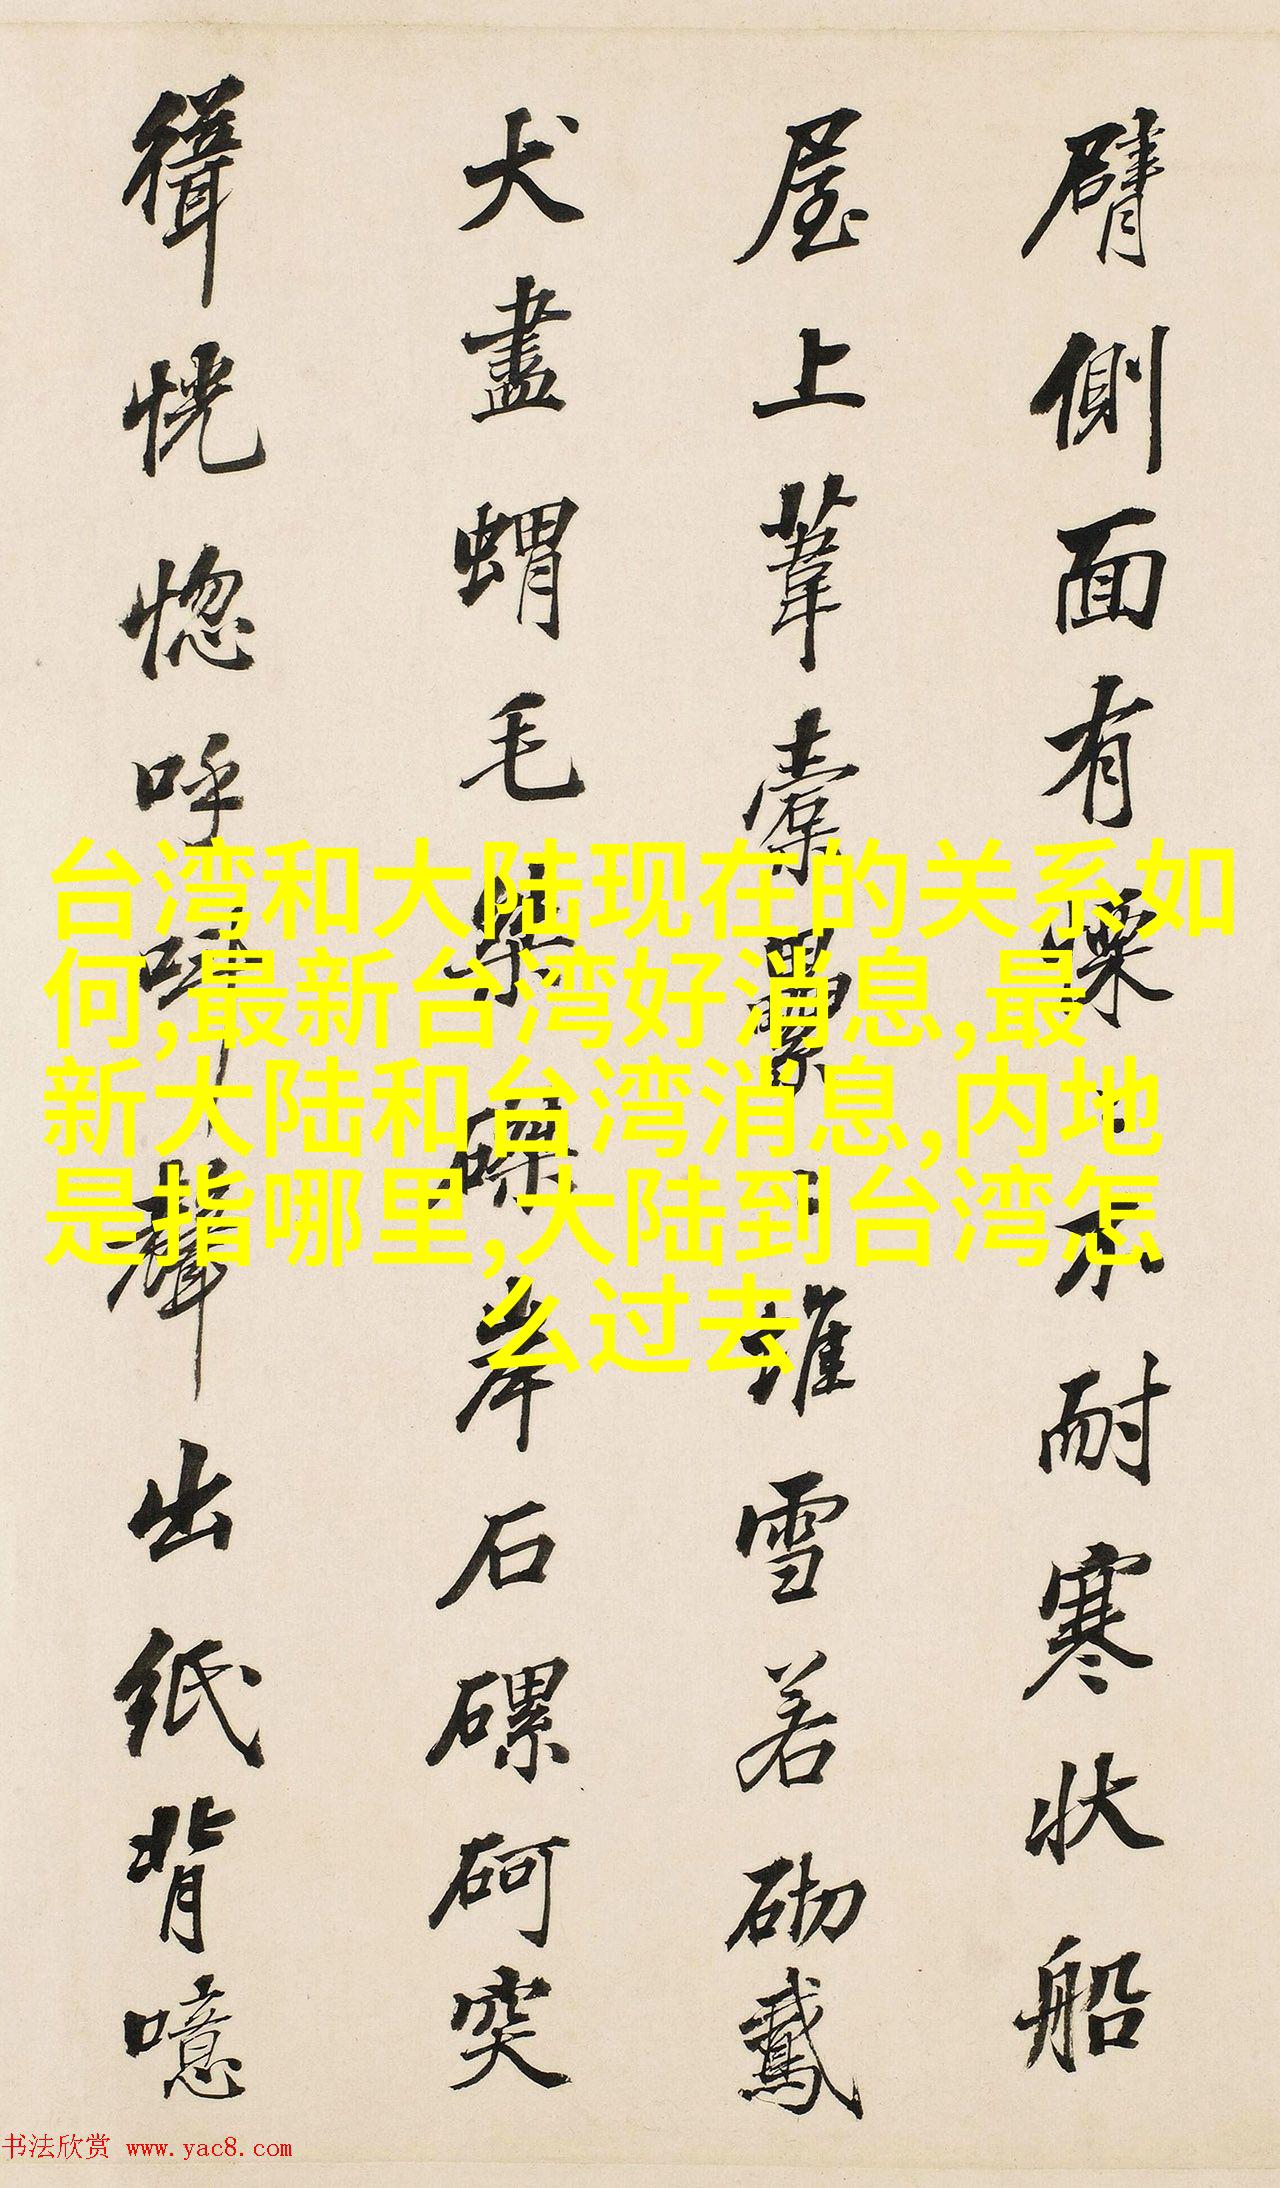 臂側面有慄、不耐寒狀船
屋上葦橐壘、堆雪若砌鸞
犬盡蝟毛磔磔岸石磥砢突
緝恍惚呼呼聲出紙背噫
台湾和大陆现在的关系如
何,最新台湾好消息,最
新大陆和台湾消息,内地
是指哪里,大陆到台湾怎
么过去
书法欣赏 www.yac8.com